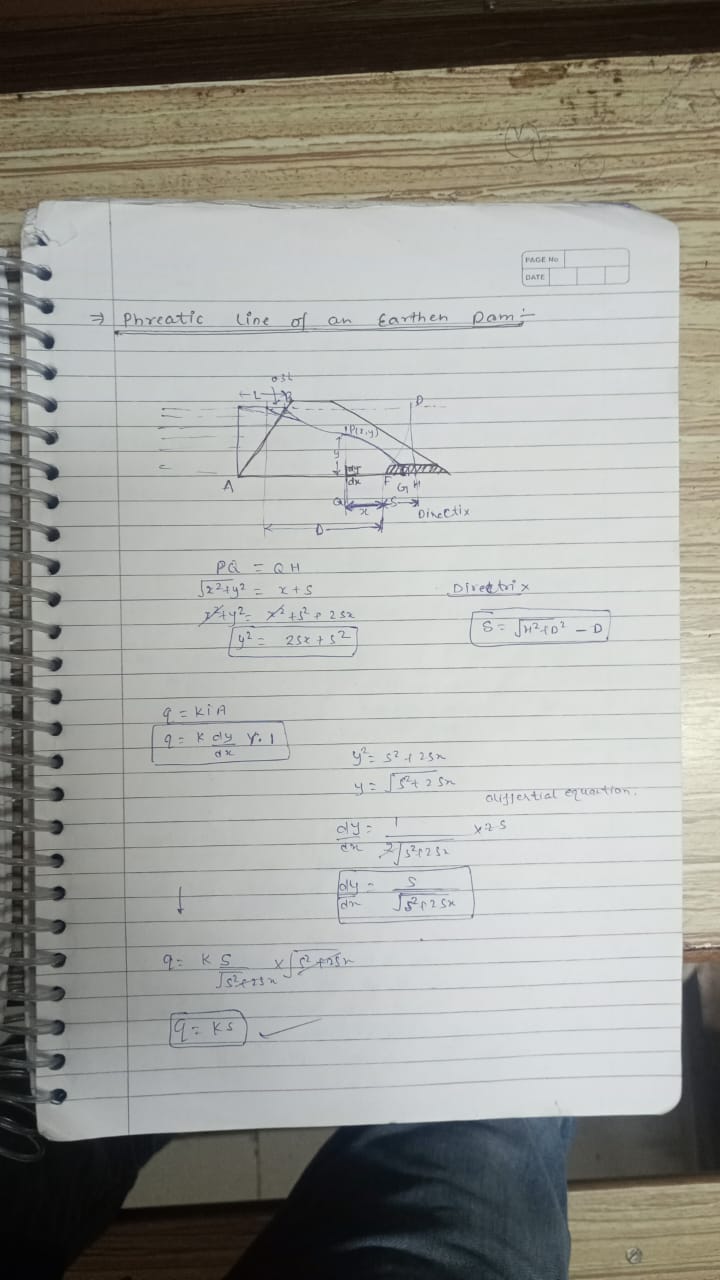 PAGE No
DATE
⇒ Phreatic line of an Earthen Dam :-
0.3L
L
B
D
P(x,y)
y
dy
dx
A
F
G
H
Q
x
S
Directix
D
PQ = QH
√x²+y² = x+s
x²+y² = x²+s²+2sx
y² = 2sx+s²
Directrix
S = √H²+D² - D
q = KiA
q = K dy/dx y.1
y² = s²+2sx
y = √s²+2sx
differtial equation.
dy/dx = 1/2√s²+2sx ×2s
dy/dx = s/√s²+2sx
↓
q = K s/√s²+2sx × √s²+2sx
q = KS ✓